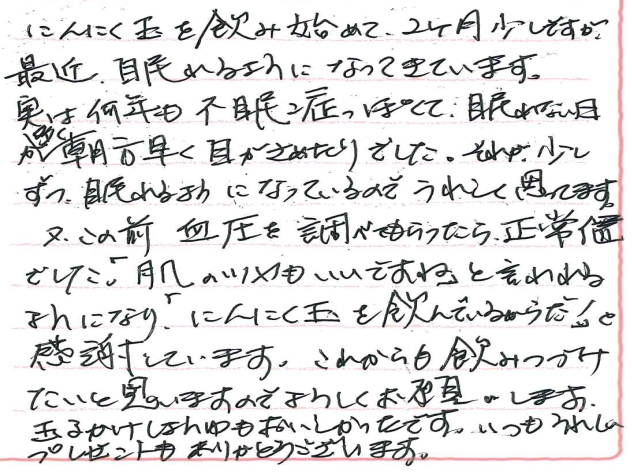 にんにく玉を飲み始めて、2ヶ月少しですが、
最近、眠れるようになってきています。
実は何年も不眠症っぽくて、眠れない日
が多く朝方早く目がさめたりでした。それが、少し
ずつ、眠れるようになっているのでうれしく思ってます
又、この前血圧を調べてもらったら、正常値
でした。「肌のツヤもいいですね」と言われる
ようになり、「にんにく玉を飲んでいるからだ!」と
感謝しています。これからも飲みつづけ
たいと思いますのでよろしくお願いします。
玉子かけしょうゆもおいしかったです。いつもうれしい
プレゼントもありがとうございます。